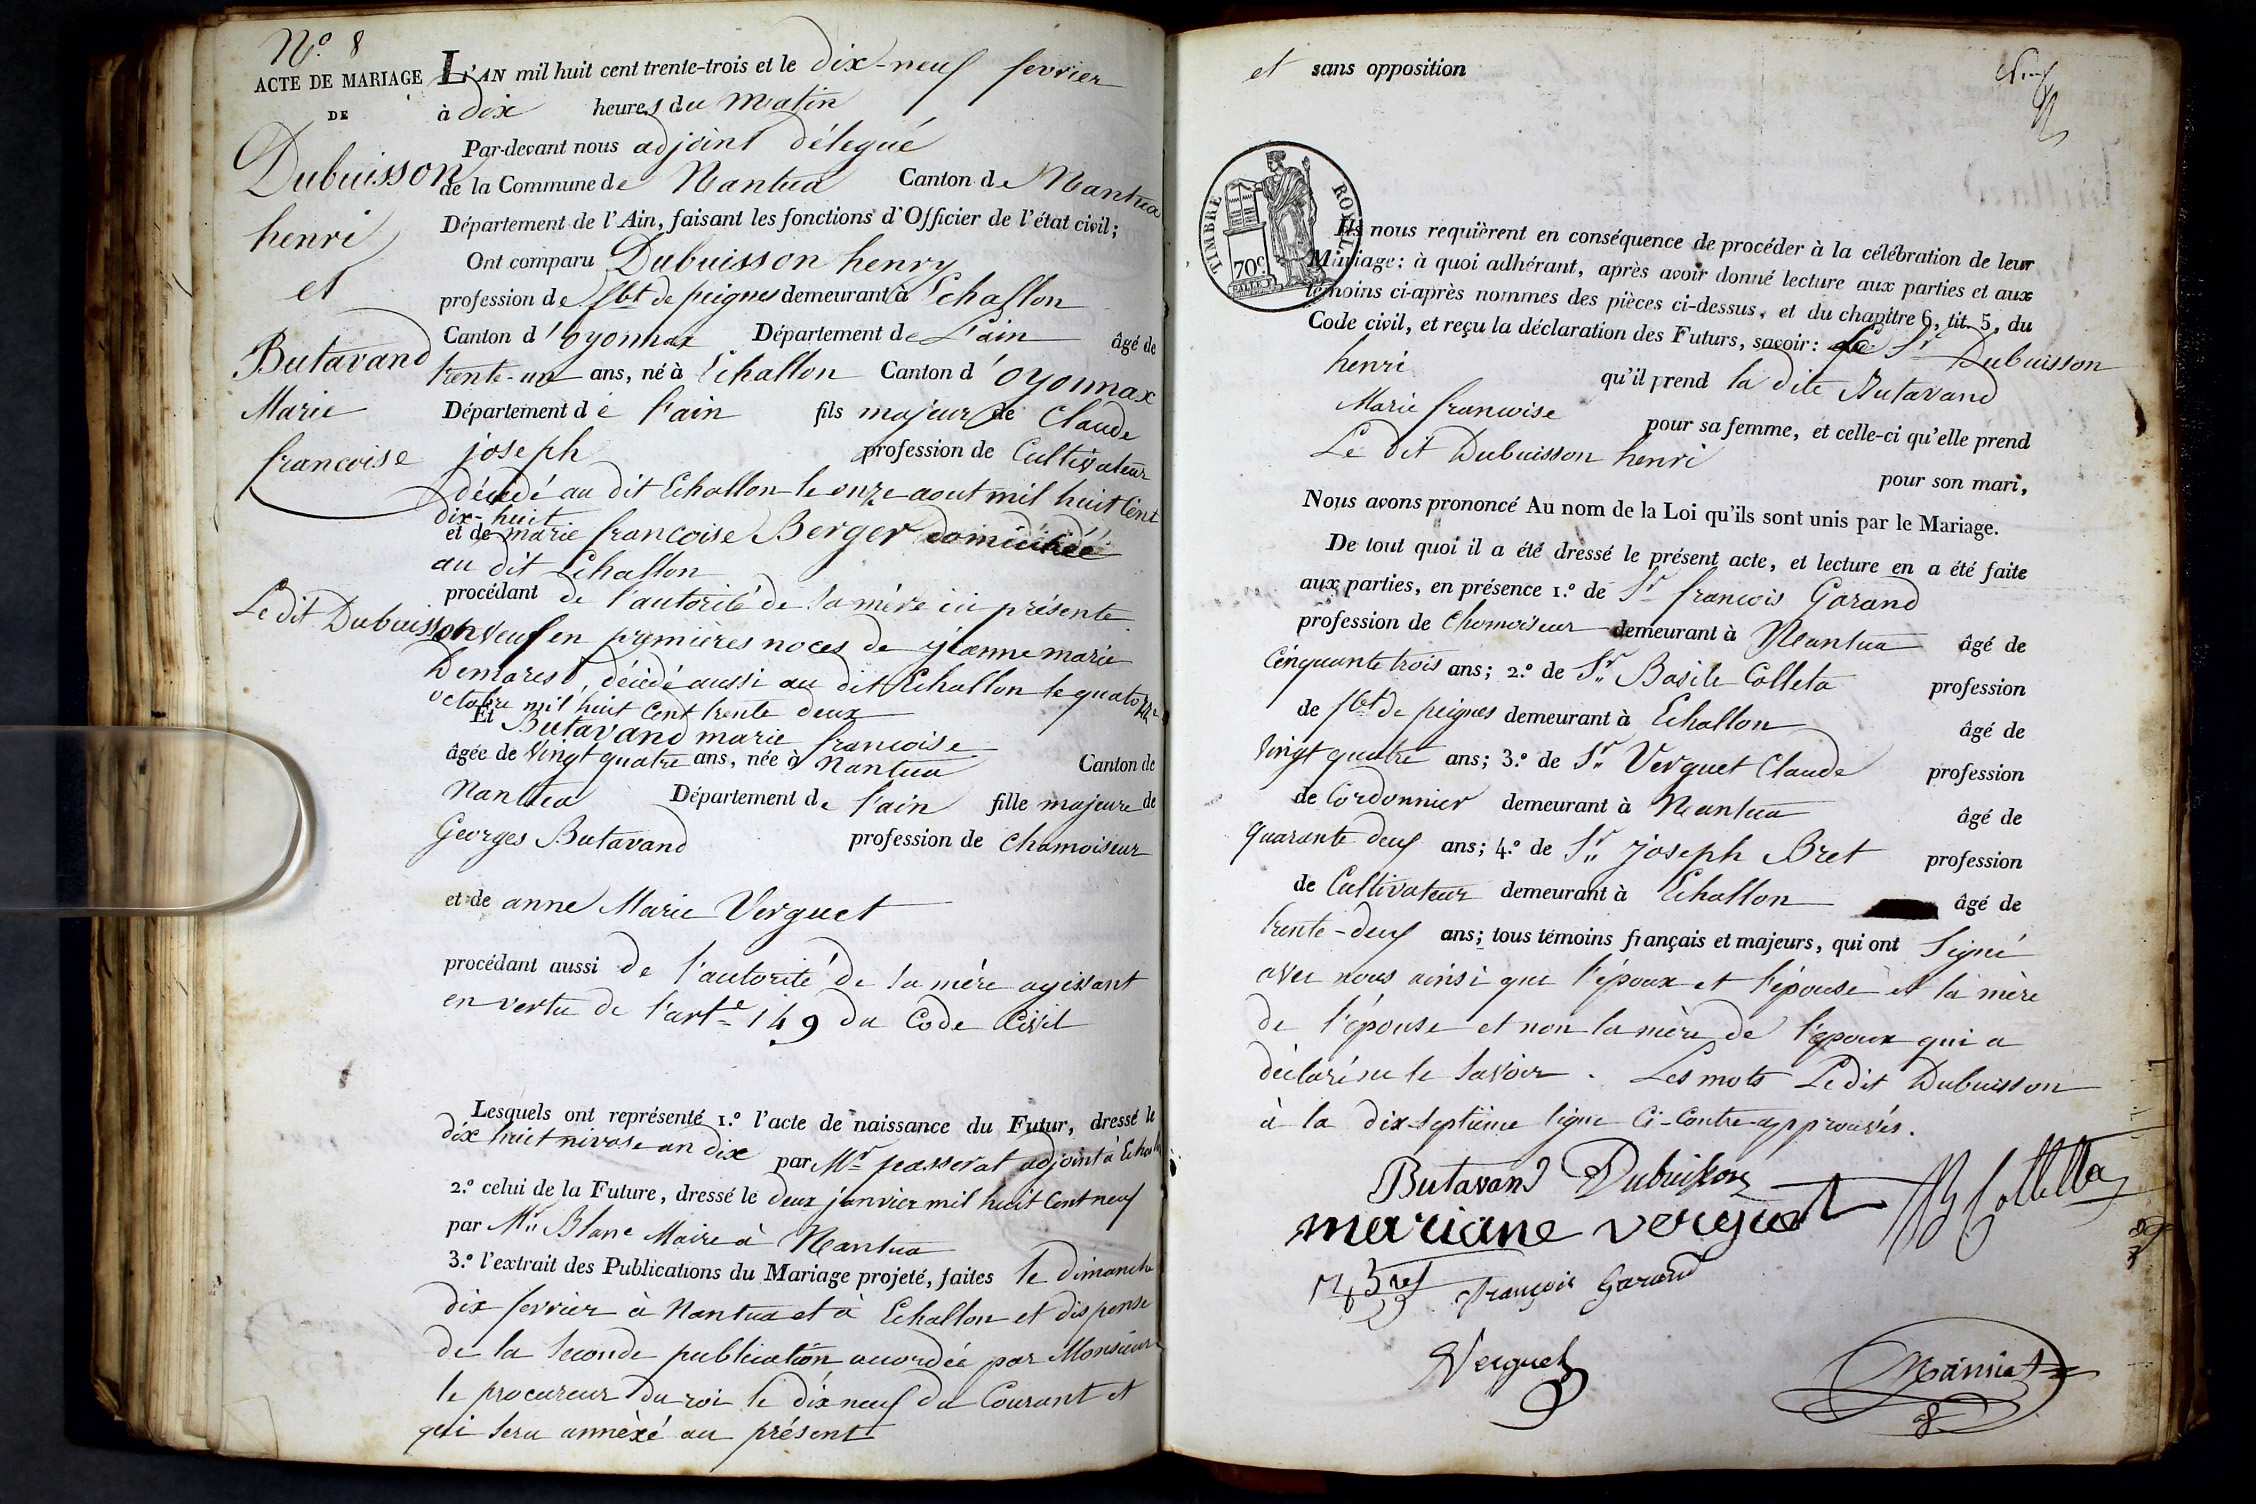 N.o 8
ACTE DE MARIAGE
DE
Dubuisson
henri
et
Butavand
Marie
francoise
L'AN mil huit cent trente-trois et le dix-neuf fevrier
à dix heures du Matin
Par-devant nous adjoint délegué
de la Commune de Nantua Canton de Nantua
Département de l'Ain, faisant les fonctions d'Officier de l'état civil;
Ont comparu Dubuisson henry
profession de fbt de peignes demeurant à Echallon
Canton d'oyonnax Département de L'ain âgé de
trente-un ans, né à Echallon Canton d'oyonnax
Département de l'ain fils majeur de Claude
joseph profession de Cultivateur
décedé au dit Echallon le onze aout mil huit Cent
dix-huit
et de marie francoise Berger domiciliée
au dit Echallon
procédant de l'autorité de sa mère ici présente
Le dit Dubuisson veuf en premières noces de jeanne marie
Demares, décédé aussi au dit Echallon le quatorze
octobre mil huit Cent trente deux
Et Butavand marie francoise
âgée de Vingt quatre ans, née à Nantua Canton de
Nantua Département de l'ain fille majeure de
Georges Butavand profession de Chamoiseur
et de anne Marie Verguet
procédant aussi de l'autorité de sa mère agissant
en vertu de l'art.e 149 du Code Civil
Lesquels ont représenté 1.o l'acte de naissance du Futur, dressé le
dix huit nivose an dix par Mr passerat adjoint à Echallon
2.o celui de la Future, dressé le deux janvier mil huit Cent neuf
par Mr Blanc Maire à Nantua
3.o l'extrait des Publications du Mariage projeté, faites le dimanche
dix fevrier à Nantua et à Echallon et dispense
de la seconde publication accordée par Monsieur
le procureur du roi le dix neuf du Courant et
qui sera annèxé au présent
et sans opposition
TIMBRE ROYAL
70c.
Ils nous requièrent en conséquence de procéder à la célébration de leur
Mariage: à quoi adhérant, après avoir donné lecture aux parties et aux
témoins ci-après nommes des pièces ci-dessus, et du chapitre 6, tit. 5, du
Code civil, et reçu la déclaration des Futurs, savoir: Le Sr Dubuisson
henri qu'il prend la dite Butavand
Marie francoise pour sa femme, et celle-ci qu'elle prend
Le dit Dubuisson henri
pour son mari,
Nous avons prononcé Au nom de la Loi qu'ils sont unis par le Mariage.
De tout quoi il a été dressé le présent acte, et lecture en a été faite
aux parties, en présence 1.o de Sr francois Garand
profession de Chamoiseur demeurant à Nantua âgé de
Cinquante trois ans; 2.o de Sr Basile Colleta profession
de fbt de peignes demeurant à Echallon âgé de
Vingt quatre ans; 3.o de Sr Verguet Claude profession
de Cordonnier demeurant à Nantua âgé de
quarante deux ans; 4.o de Sr joseph Bret profession
de Cultivateur demeurant à Echallon âgé de
trente-deux ans; tous témoins français et majeurs, qui ont signé
avec nous ainsi que l'époux et l'épouse et la mère
de l'épouse et non la mère de l'époux qui a
déclaré ne le savoir. Les mots Le dit Dubuisson
à la dix-septième ligne Ci-Contre approuvés.
Butavand Dubuisson B Colletta
mariane verguet
Bret françois Garand
Verguet